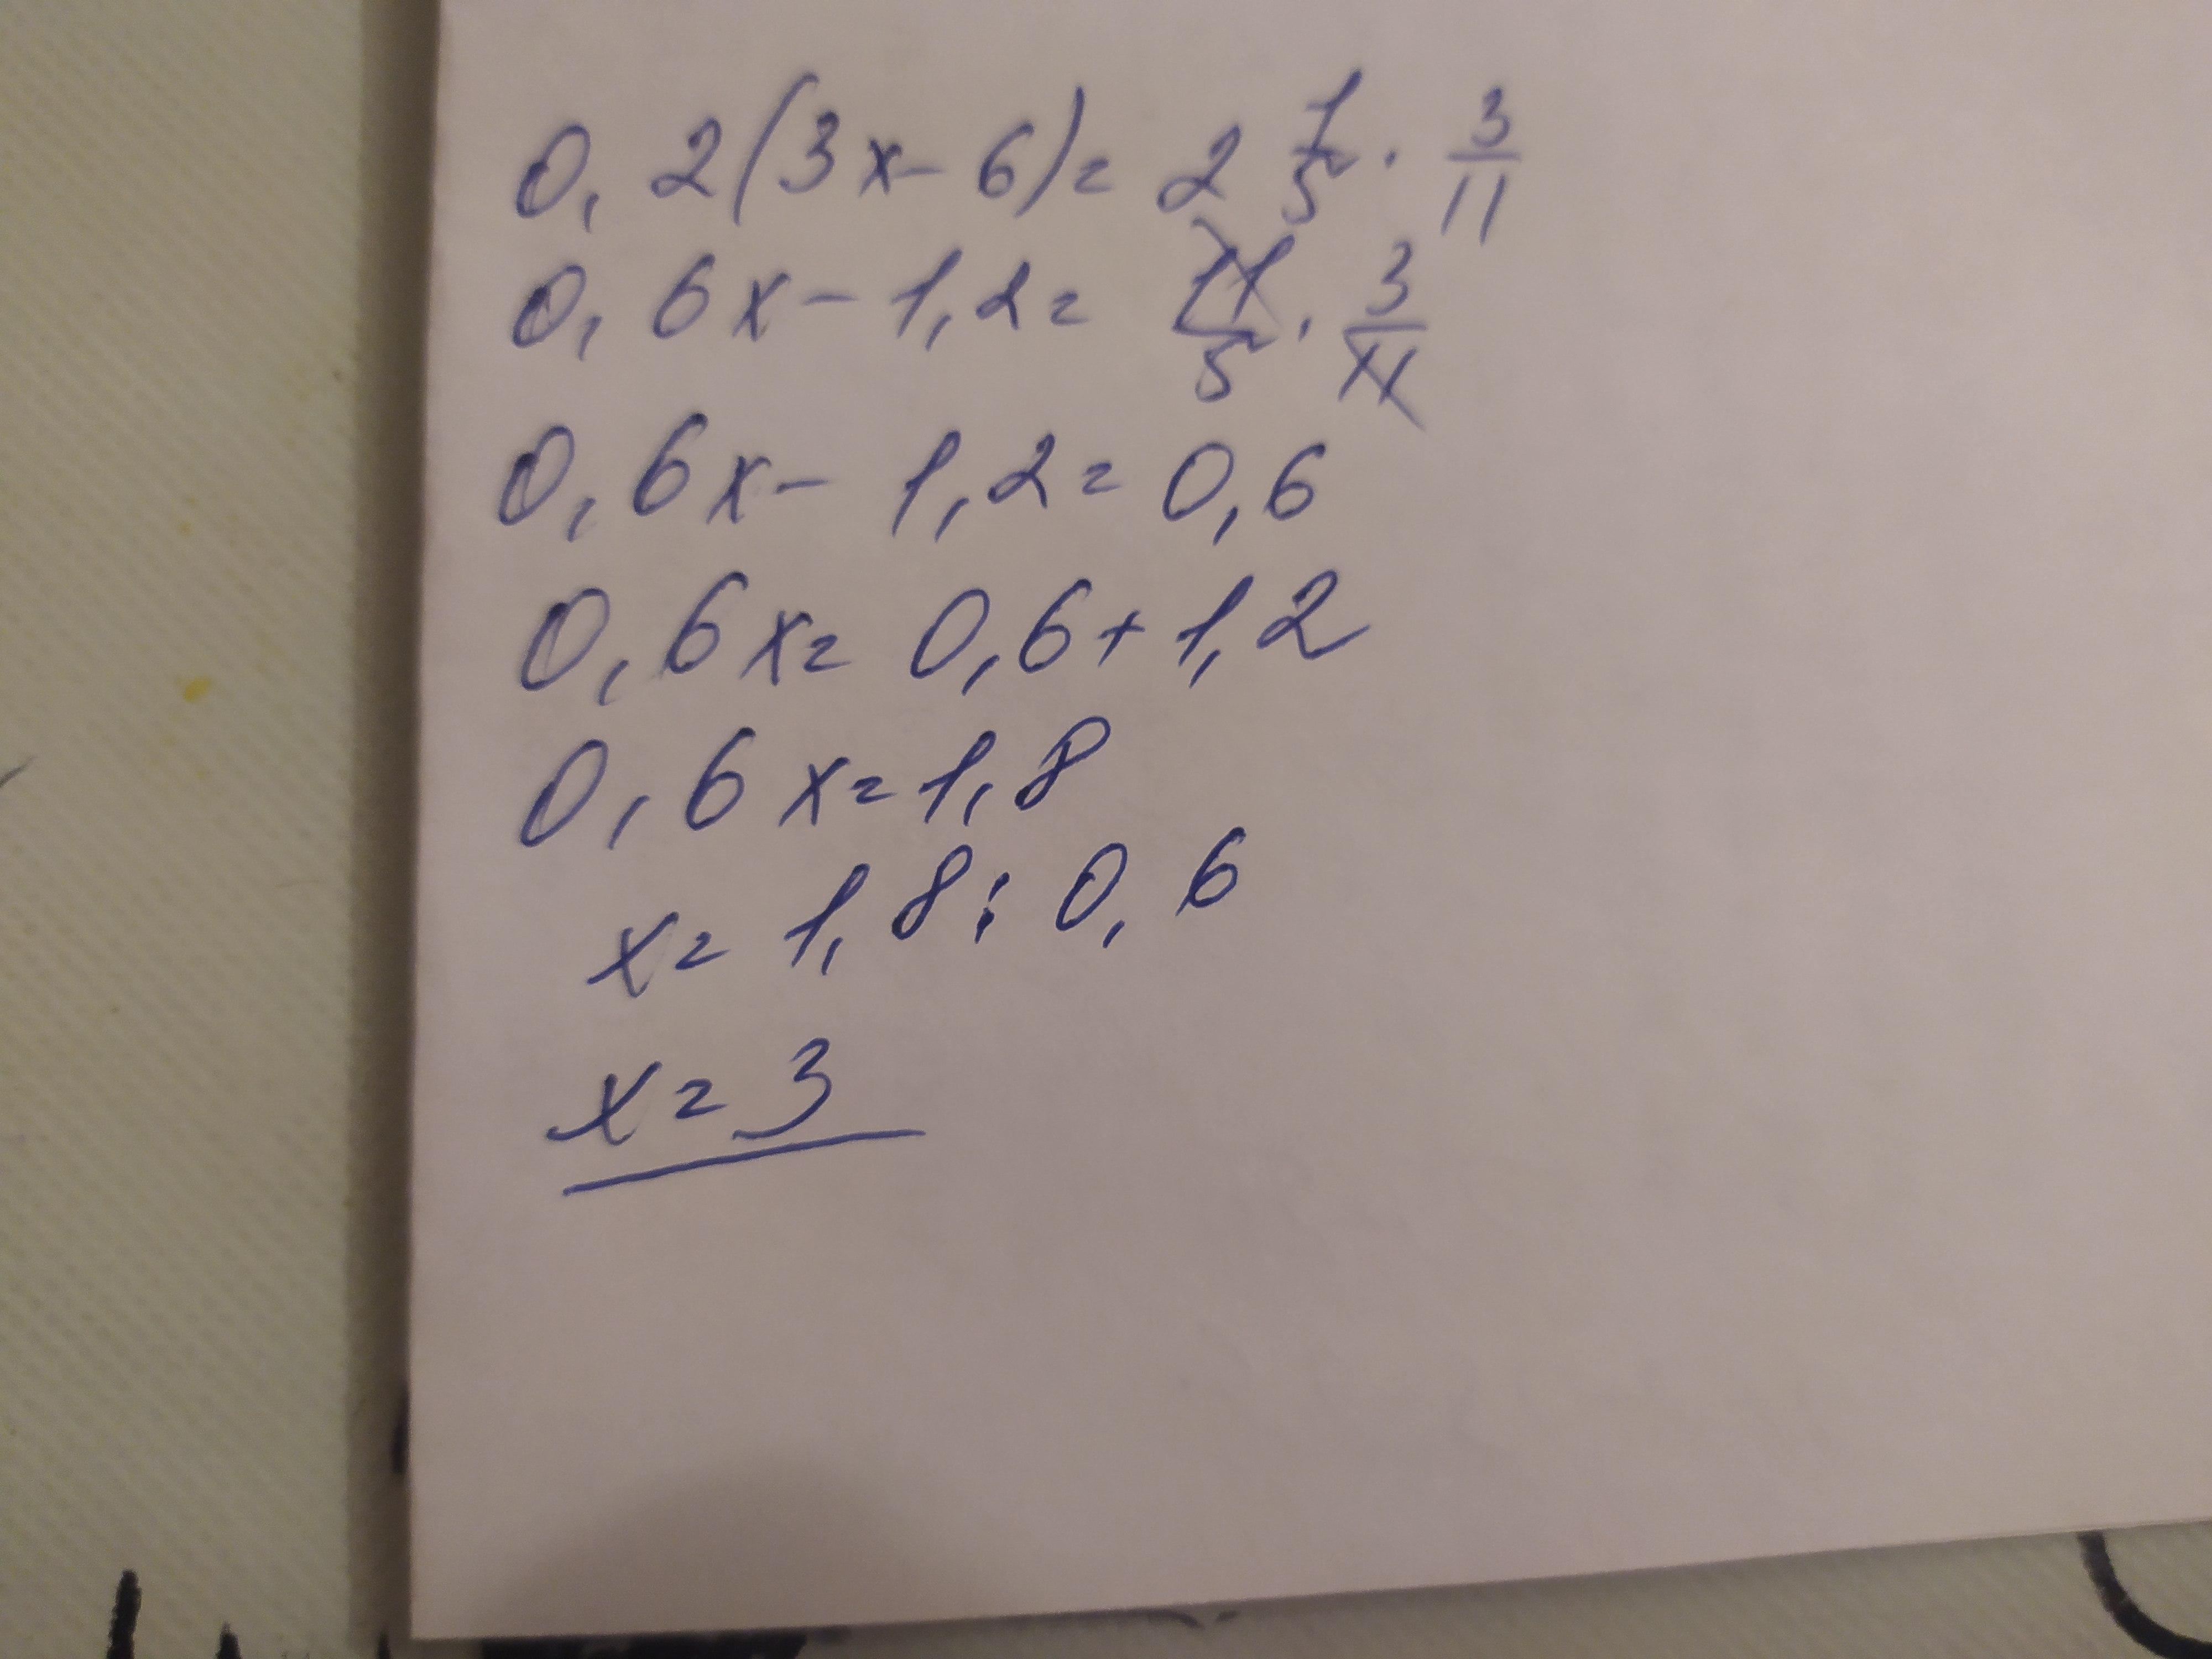 0,2(3x-6)=2 1/5 · 3/11
0,6x-1,2= 11/5 · 3/11
0,6x-1,2=0,6
0,6x=0,6+1,2
0,6x=1,8
x=1,8:0,6
x=3